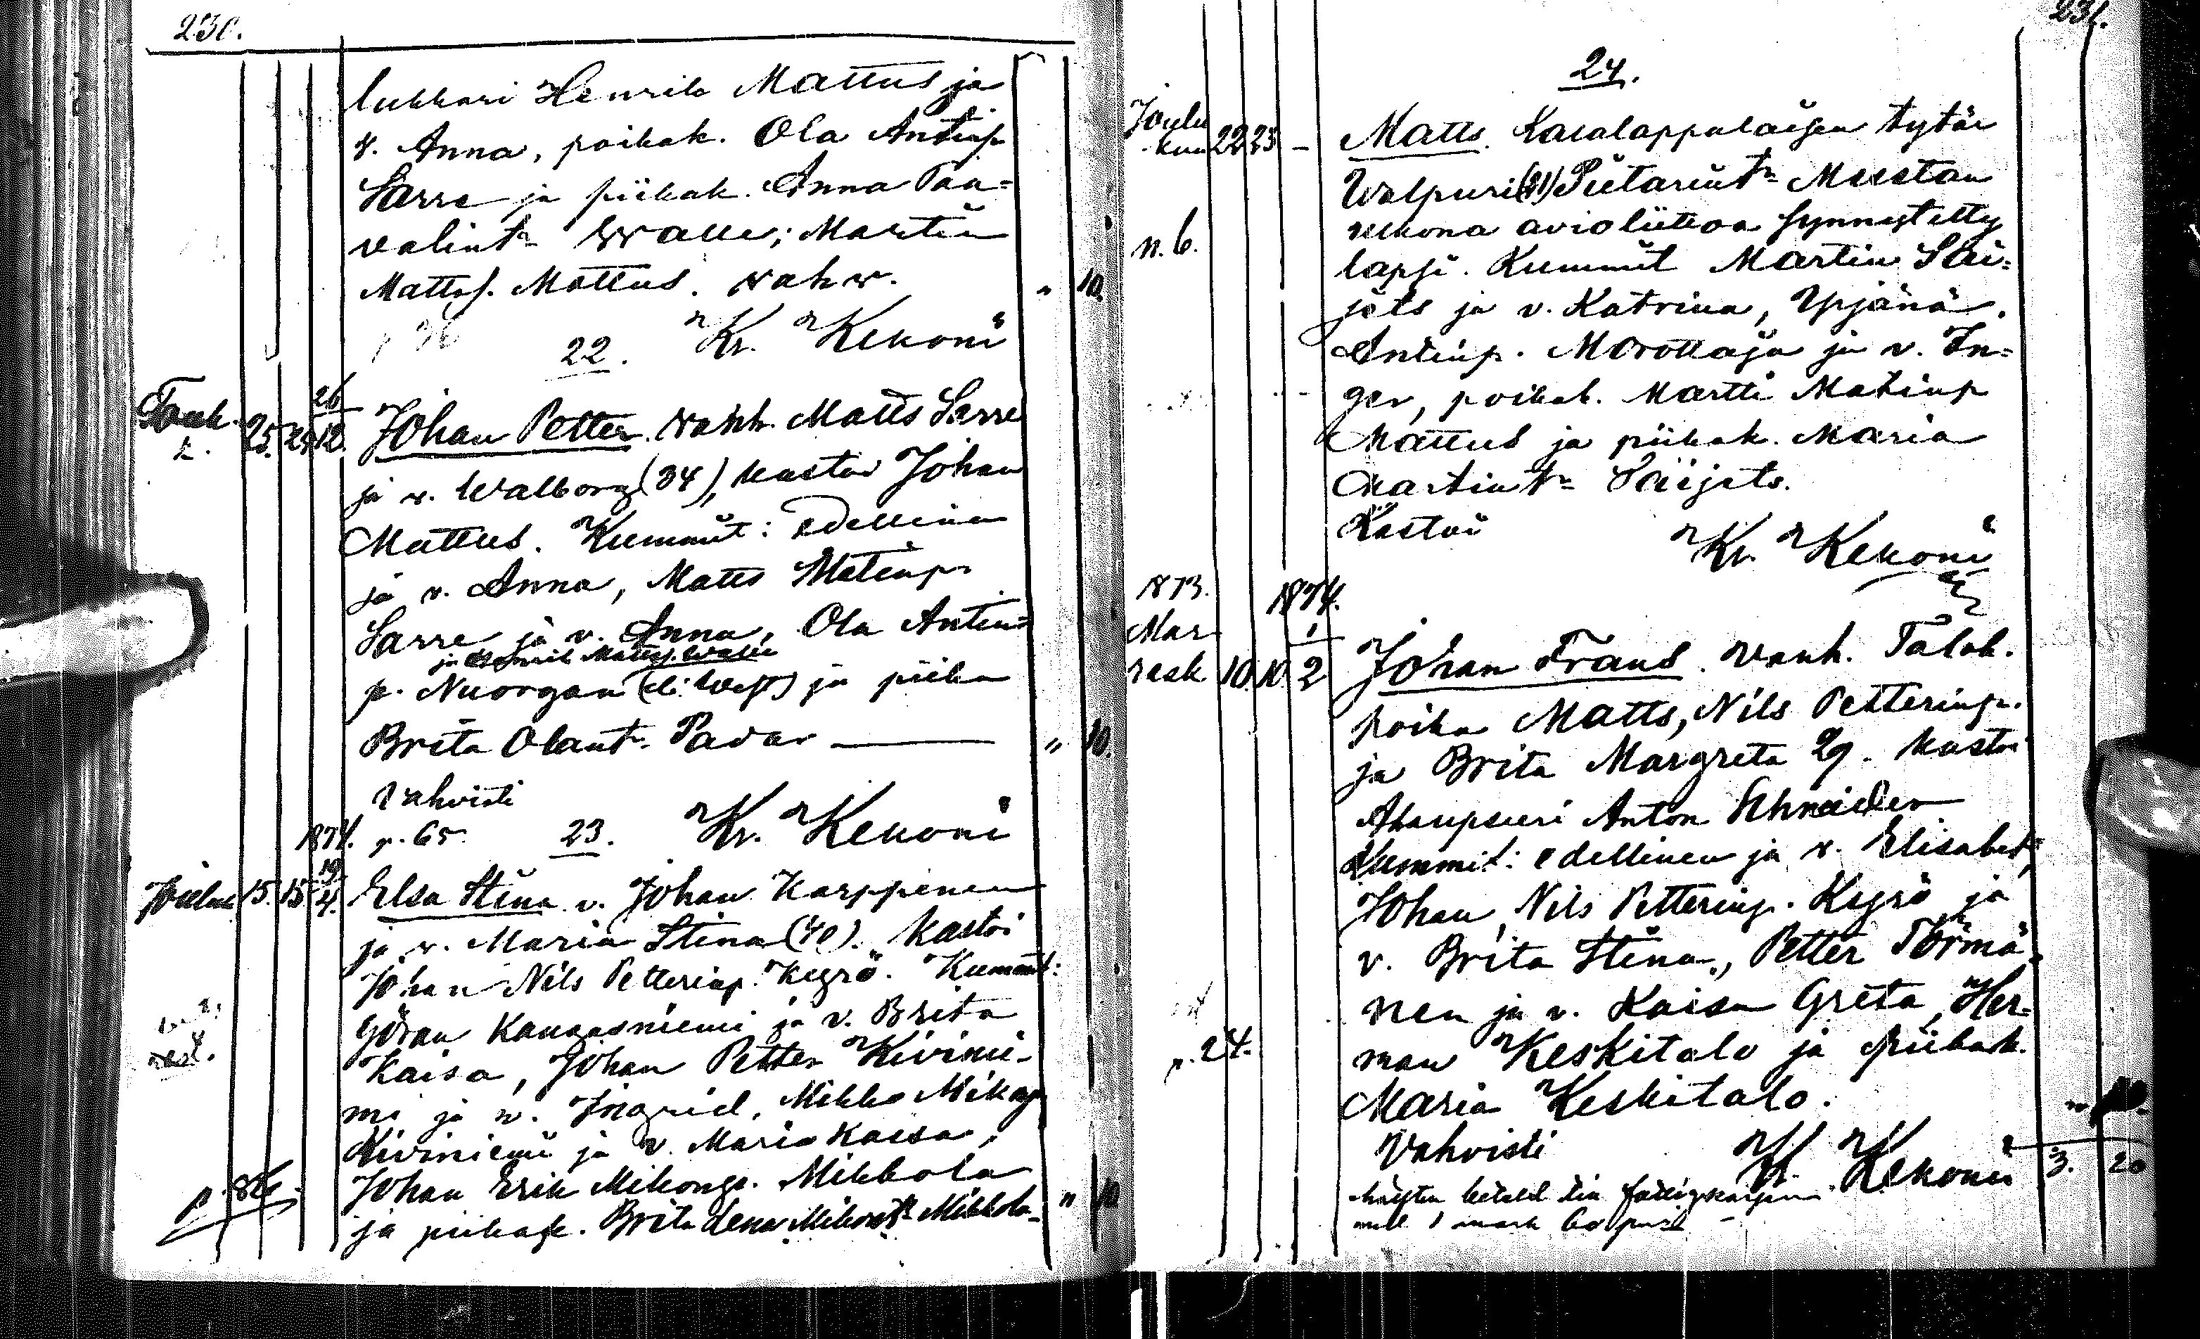 230.
lukkari Henrik Mattus ja
v. Anna, poikak. Ola Antinp.
Sarre ja piikak. Anna Paa=
valint: Walle; Martin
Mattsp. Mattus. vahv. " 10.
22. Kr. Kekoni
Touk. 25. 26/12. Johan Petter. vanh. Matts Sarre
ja v. Walborg (34), kastoi Johan
Mattus. Kummit: edellinen
ja v. Anna, Matts Matinp.
Sarre ja v. Anna, Ola Antin=
ja Henrik Mattsp. Walle
p. Nuorgan ja piika
Brita Olant. Padar " 10.
Vahvisti
1874. p. 65. 23. Kr. Kekoni
Joulu 15. 15 19/4. Elsa Stina v. Johan Karppinen
ja v. Maria Stina (40). Kastoi
Johan Nils Petterinp. Kyrö. Kummit:
Göran Kangasniemi ja v. Brita
Kaisa, Johan Petter Kivinie-
mi ja v. Ingrid, Mikko Mikonp.
Kiviniemi ja v. Maria Kaisa,
Johan Erik Mikonp. Mikkola
ja piikak. Brita Lena Mikont. Mikkola " 10
231.
24.
Joulu
kuu 22 23 – Matts. Kalalappalaisen tytär
Walpuri (21) Pietarint: Mustan
ulkona avioliittoa synnytetty
n. 6. lapsi. Kummit Martin Sai=
jets ja v. Katrina, Yrjänä
Antinp. Morottaja ja v. In=
ger, poikak. Martti Matinp
Mattus ja piikak. Maria
Martint: Saijets.
Kastoi Kr. Kekoni
1873. 1874.
Mar
rask 10. 10. 1/2 Johan Frans. vanh. Talok.
poika Matts, Nils Petterinp.
ja Brita Margreta 29. kastoi
Anton Schneider
Kummit: edellinen ja v. Elisabet,
Johan, Nils Petterinp. Kyrö ja
v. Brita Stina, Petter Törmä=
nen ja v. Kaisa Greta, Her-
p. 24. man Keskitalo ja piikak.
Maria Keskitalo.
Vahvisti K. Kekoni 3. 20